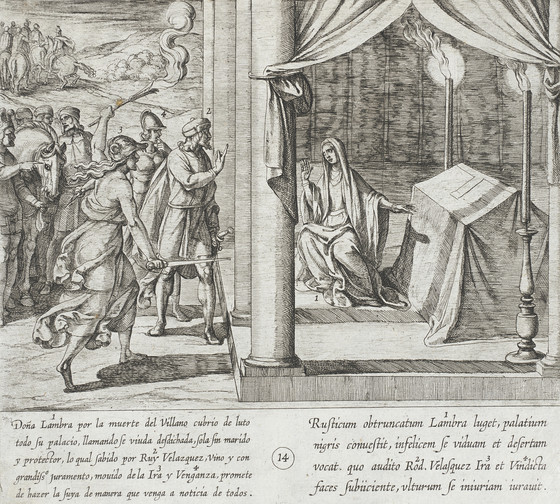 Doña Lambra por la muerte del Villano cubrio de luto
todo su palacio, llamandose viuda desdichada, sola sin marido
y protector, lo qual sabido por Ruy Velazquez, Vino y con
grandiss juramento, mouido de la Ira y Venganza, promete
de hazer la suya de manera que venga a noticia de todos.
14
Rusticum obtruncatum Lambra luget, palatium
nigris conuestit, infelicem se viduam et desertam
vocat. quo audito Rod. Velasquez Ira et Vindicta
faces subiiciente, vlturum se iniuriam iurauit.
1
2
3